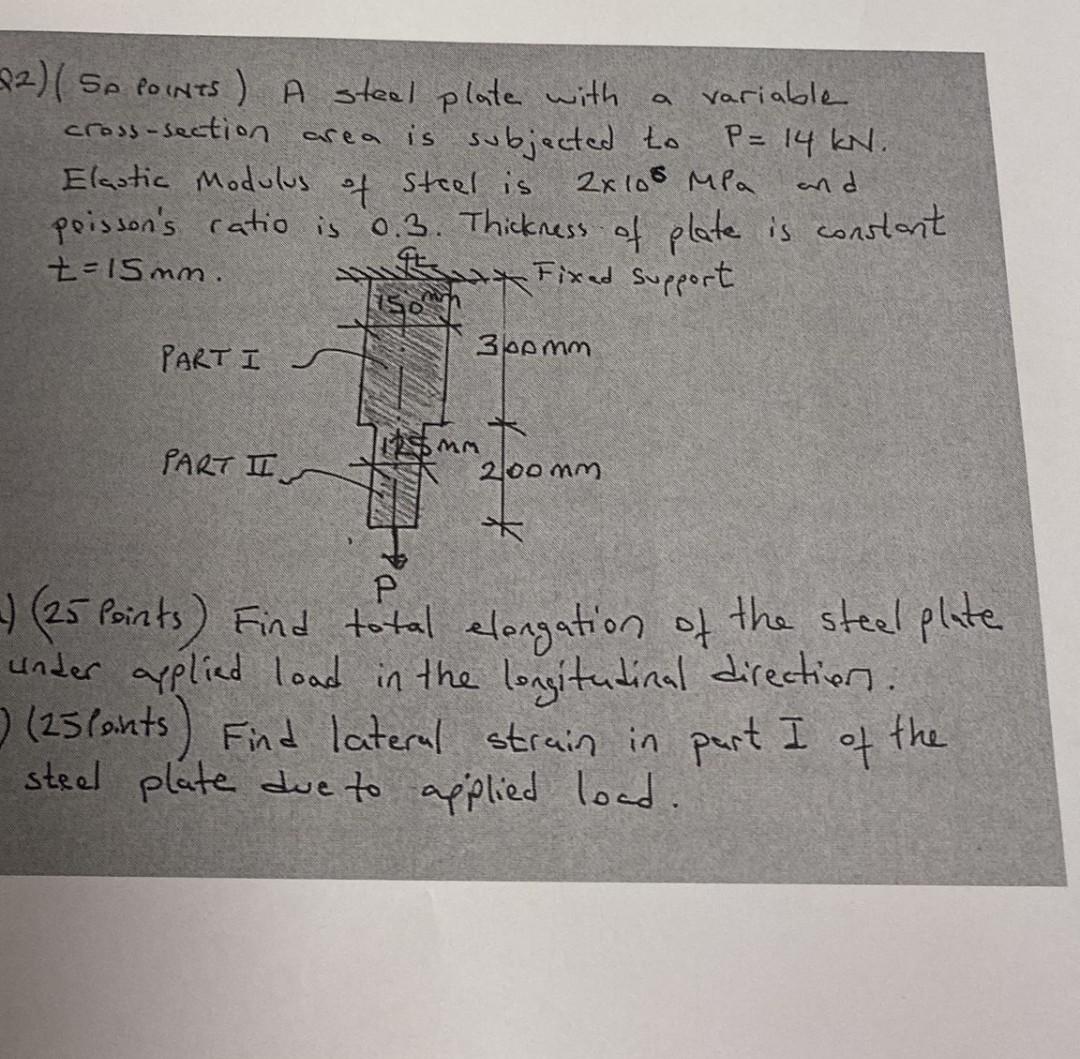 Q2) (50 POINTS) A steel plate with a variable
cross-section area is subjected to P= 14 kN.
Elastic Modulus of Steel is MPa and
poisson's ratio is 0.3. Thickness of plate is constant
t=15mm.
Fixed Support
150mm
300mm
PART I
mm
PART II
200mm
P
) (25 Points) Find total elongation of the steel plate
under applied load in the longitudinal direction.
) (25 Points) Find lateral strain in part I of the
steel plate due to applied load.